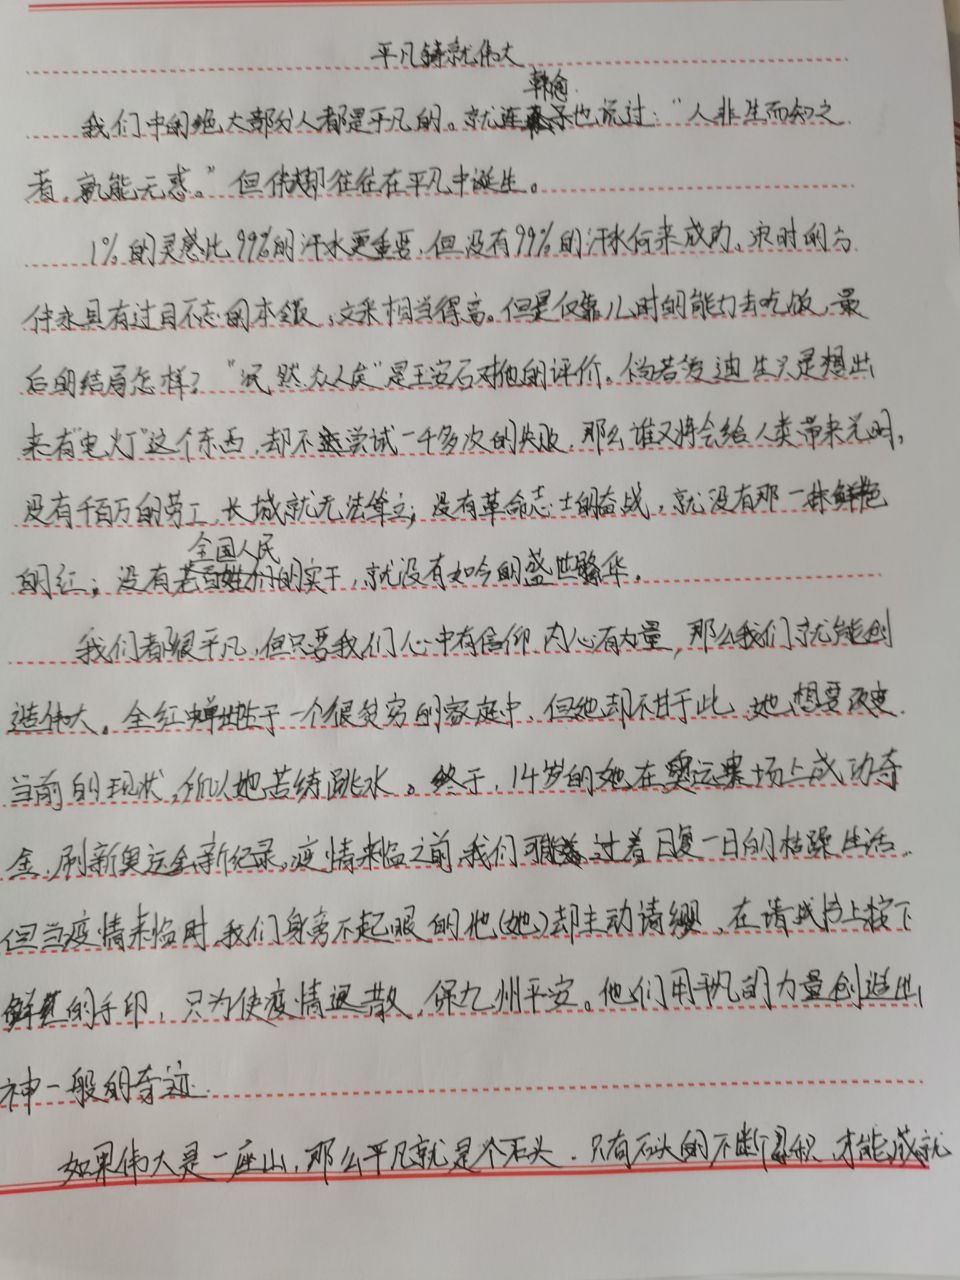 平凡铸就伟大
韩愈
我们中的绝大部分人都是平凡的。就连也说过："人非生而知之
者,孰能无惑。"但伟大却往往在平凡中诞生。
1%的灵感比99%的汗水更重要,但没有99%的汗水何来成功、宋时的方
仲永具有过目不忘的本领,文采相当得高。但是仅靠儿时的能力去吃饭,最
后的结局怎样?"泯然众人矣"是王安石对他的评价。倘若爱迪生只是想出
来有"电灯"这个东西,却不尝试一千多次的失败,那么谁又将会给人类带来光明。
没有千百万的劳工,长城就无法耸立;没有革命志士的奋战,就没有那一抹鲜艳
全国人民
的红;没有的实干,就没有如今的盛世繁华。
我们都很平凡,但只要我们心中有信仰,内心有力量,那么我们就能创
造伟大。全红婵出生于一个很贫穷的家庭中,但她却不甘于此,她想要改变
当前的现状,所以她苦练跳水。终于,14岁的她在奥运赛场上成功夺
金,刷新奥运会新纪录。疫情来临之前,我们过着日复一日的枯燥生活,
但当疫情来临时,我们身旁不起眼的他(她)却主动请缨,在请战书上按下
鲜红的手印,只为使疫情退散,保九州平安。他们用平凡的力量创造出
神一般的奇迹.
如果伟大是一座山,那么平凡就是个石头.只有石头的不断累积,才能成就